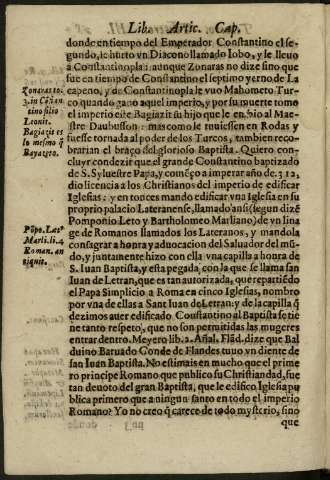 Libro Artic. Cap.
donde en tiempo del Emperador Constantino el se-
gundo, le hurto vn Diacono llamado Iobo, y le lleuo
a Constantinopla: aunque Zonaras no dize sino que
fue en tiempo de Constantino el septimo yerno de La
Zonaras to.
capeno, y de Constantinopla le vuo Mahometo Tur-
3. in Cõstan
co quando gano aquel imperio, y por su muerte tomo
tino filio
el imperio este Bagiazit su hijo que le enbio al Mae-
Leonis.
stre Daubusson: mas como le truiessen en Rodas y
Bagiazit es
fuesse tornada al poder de los Turcos, tambien reco-
lo mesmo q̃
brarian el braço del glorioso Baptista. Quiero con-
Bayazeto.
cluyr con dezir que el grande Constantino baptizado
de S. Syluestre Papa, y comẽço a imperar año de. 312,
dio licencia a los Christianos del imperio de edificar
Iglesias: y entonces mando edificar vna Iglesia en su
proprio palacio Lateranense, llamado ansi (segun dizẽ
Pomponio Leto y Bartholomeo Marliano) de vn lina
Põpo. Læt°
ge de Romanos llamados los Lateranos, y mandola
Marli. li. 4
consagrar a honra y aduocacion del Saluador del mũ-
Roman. an
do, y juntamente hizo con ella vna capilla a honra de
tiquit.
S. Iuan Baptista, y esta pegada, con la que se llama san
Iuan de Letran, que es tan autorizada, que repartiẽdo
el Papa Simplicio a Roma en cinco Iglesias, nombro
por vna de ellas a Sant Iuan de Letran: y de la capilla q̃
dezimos auer edificado Constantino al Baptista se tie
ne tanto respeto, que no son permitidas las mugeres
entrar dentro. Meyero lib. 2. Añal. Flãd. dize que Bal
duino Baruado Conde de Flandes tuuo vn diente de
san Iuan Baptista. No estimais en mucho que el prime
ro principe Romano que publico su Christiandad, fue
tan deuoto del gran Baptista, que le edifico Iglesia pu
blica primero que a ningun santo en todo el imperio
Romano? Yo no creo q̃ carece de todo mysterio, sino
que